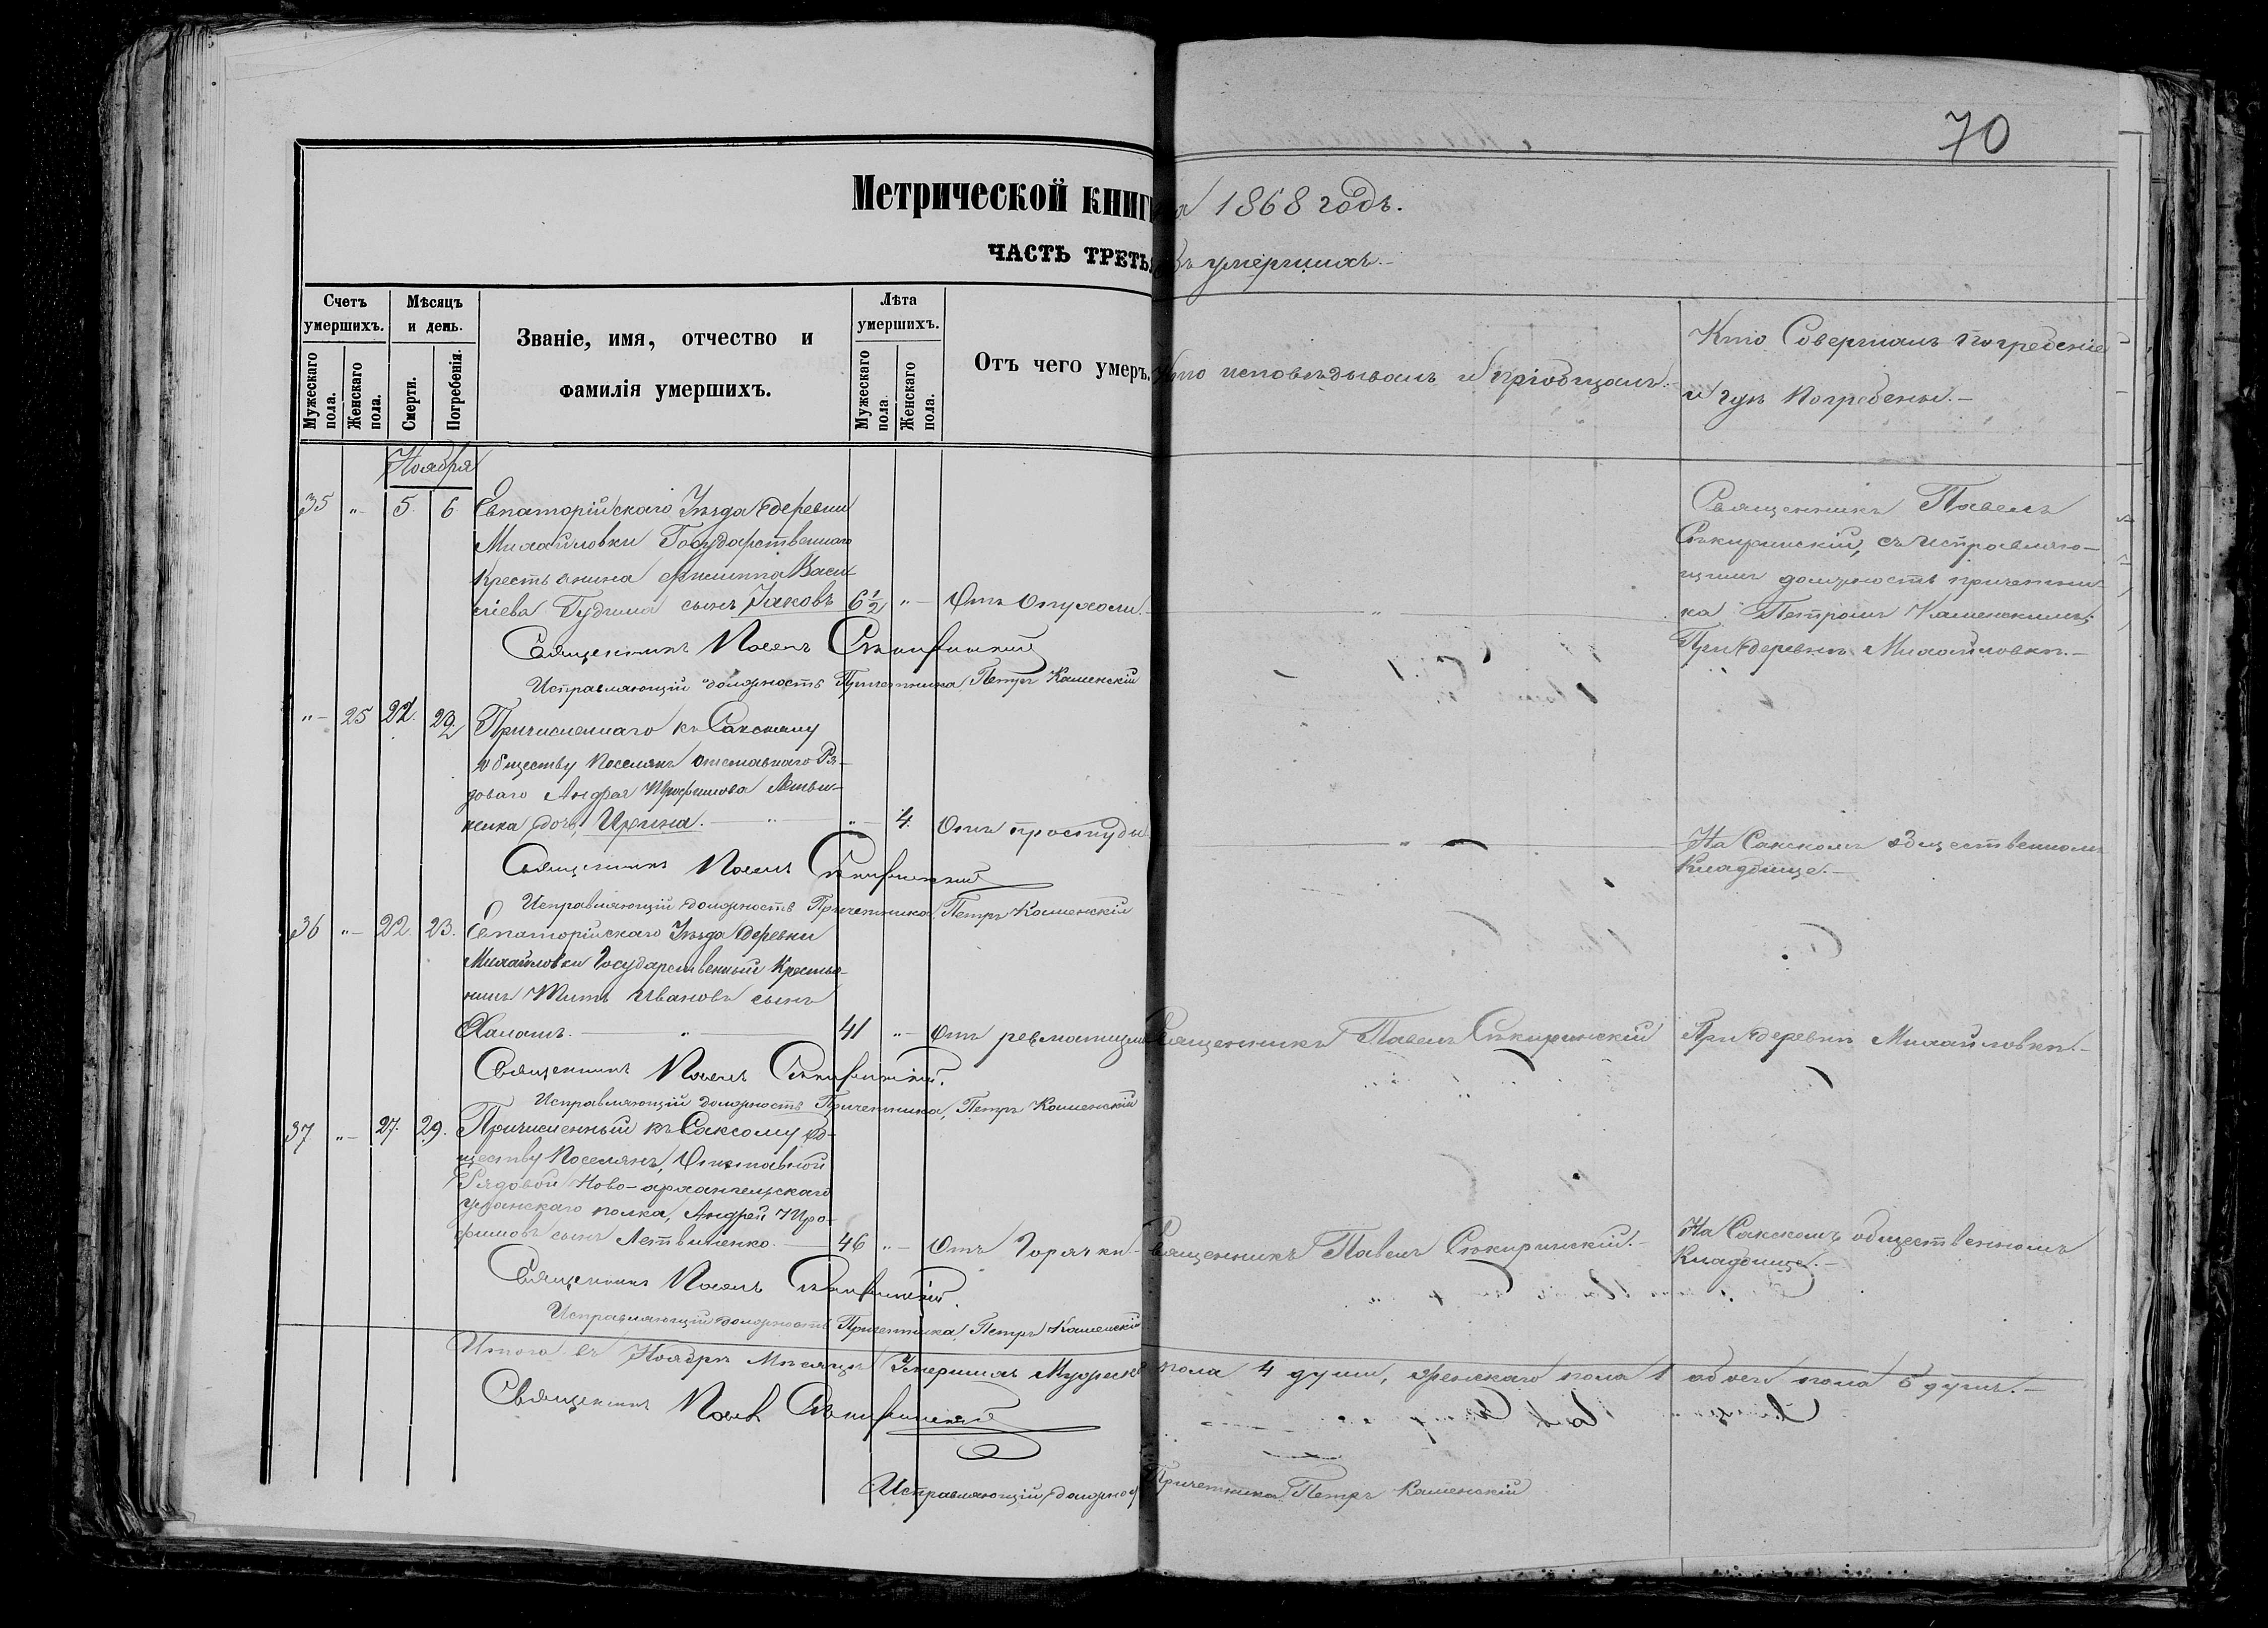 70
Метрической книги на 1868 годъ.
ЧАСТЬ ТРЕТЬЯ умершихъ.
Счетъ умершихъ.
Мѣсяцъ и день.
Званіе, имя, отчество и фамилія умершихъ.
Лѣта умершихъ.
Отъ чего умеръ.
Кто исповѣдывалъ и пріобщалъ.
Кто Совершалъ погребеніе
и гдѣ Погребены.
Мужескаго пола.
Женскаго пола.
Смерти.
Погребенія.
Мужескаго пола.
Женскаго пола.
Ноября
35 „ 5. 6 Евпаторійскаго Уѣзда деревни
Михайловки Государственнаго
Крестьянина Филиппа Васи-
ліева Гудима сынъ Іаковъ 6½ „ Отъ Опухоли. „
Священникъ Павелъ
Сѣкиринскій, съ исправляю-
щимъ должность причетни-
ка Петромъ Каменскимъ,
При деревнѣ Михайловкѣ.
Священникъ Павелъ Сѣкиринскій
Исправляющій должность Причетника, Петръ Каменскій
„ 25 Причисленнаго къ Сакскому
обществу Поселянъ отставнаго Ря-
доваго Андрея Трофимова Литви-
ненка дочь Ирина. „ 4. Отъ простуды „
На Сакскомъ общественномъ
Кладбище.
Священникъ Павелъ Сѣкиринскій
Исправляющій должность Причетника, Петръ Каменскій
36 „ 22. 23. Евпаторійскаго Уѣзда деревни
Михайловки Государственный Крестья-
нинъ Титъ Ивановъ сынъ
41 „ Отъ ревматизма Священникъ Павелъ Сѣкиринскій При деревнѣ Михайловкѣ.
Священникъ Павелъ Сѣкиринскій.
Исправляющій должность Причетника, Петръ Каменскій
37 „ 27. 29. Причисленный къ Сакскому об-
ществу Поселянъ, Отставной
Рядовой Ново-архангельскаго
уланскаго полка, Андрей Тро-
фимовъ сынъ Летвиненко. 46 „ Отъ Горячки. Священникъ Павелъ Сѣкиринскій. На Сакскомъ общественномъ
Кладбище.
Священникъ Павелъ Сѣкиринскій.
Исправляющій должность Причетника, Петръ Каменскій
Итого въ Ноябрѣ Мѣсяцѣ Умершихъ Мужеска пола 4 души, женскаго пола 1 обоего пола 5 душъ.
Священникъ Павелъ Сѣкиринскій
Исправляющій должност Причетника Петръ Каменскій